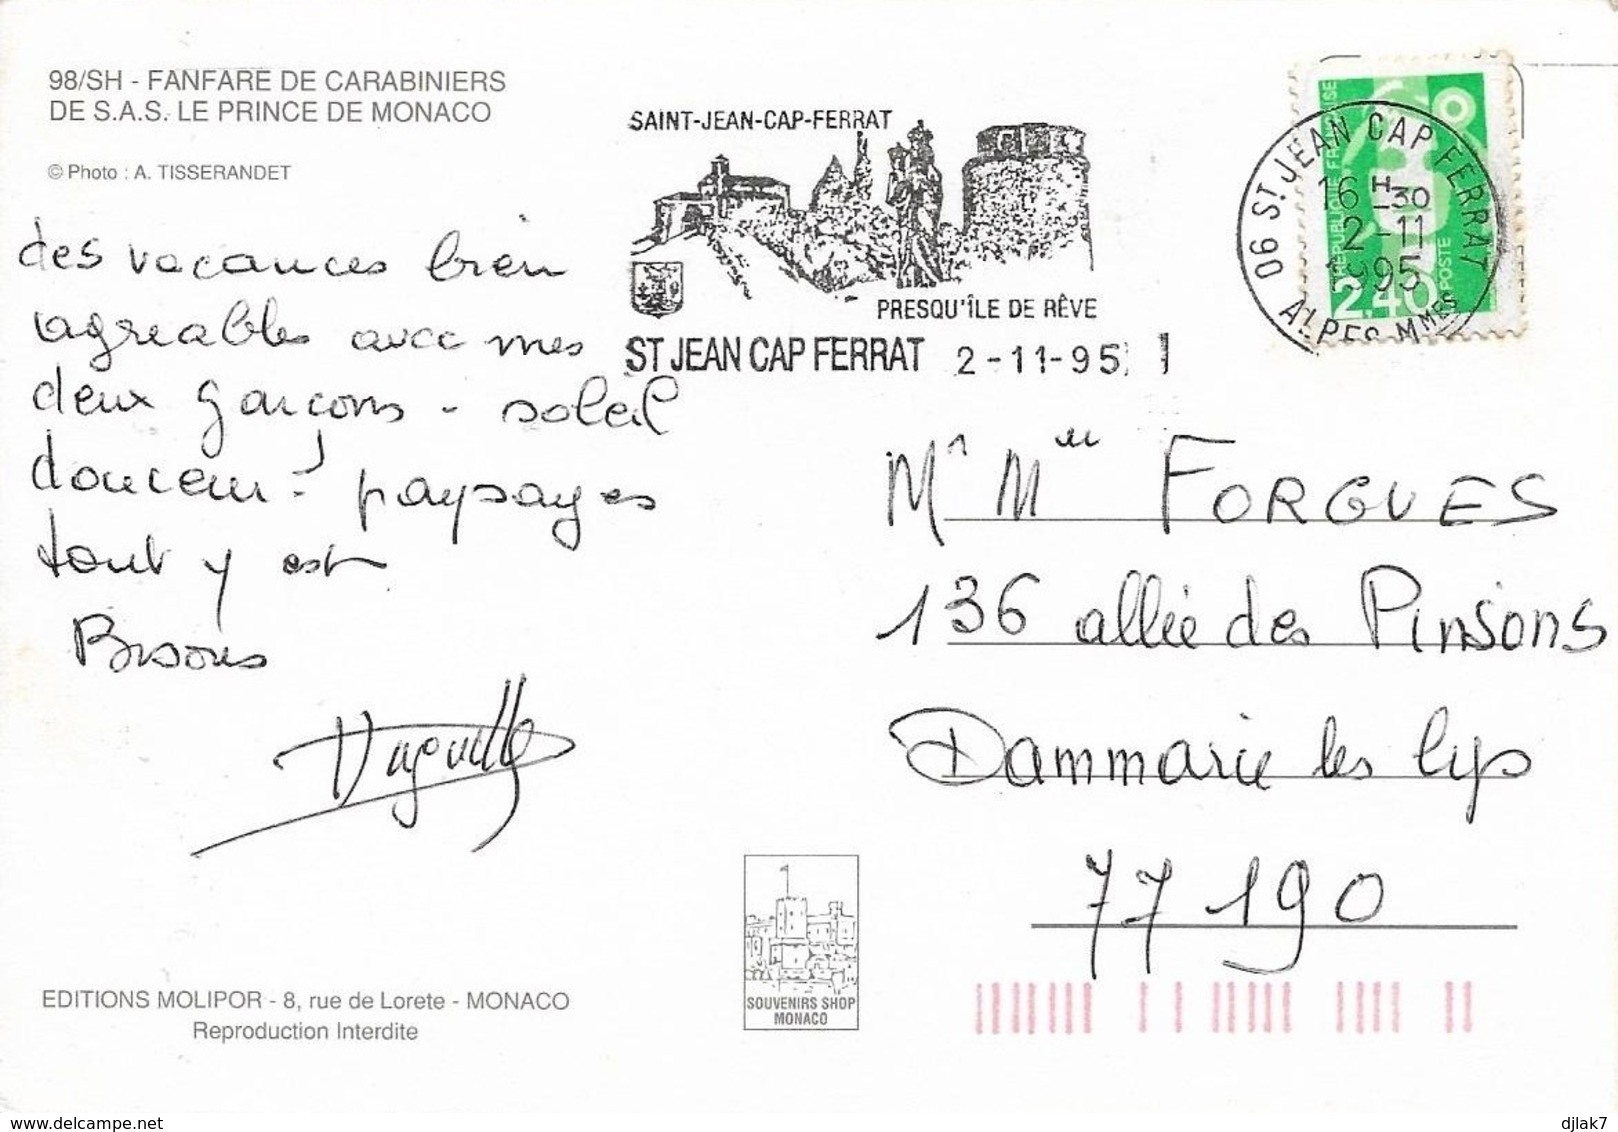 98/SH - FANFARE DE CARABINIERS
DE S.A.S. LE PRINCE DE MONACO
© Photo : A. TISSERANDET
des vacances bien
agreables avec mes
deux garçons - soleil
douceur - paysages
tout y est
Bisous
SAINT-JEAN-CAP-FERRAT
PRESQU'ÎLE DE RÊVE
ST JEAN CAP FERRAT 2-11-95
06 ST JEAN CAP FERRAT
16 H 30
2-11
1995
ALPES-MMES
REPUBLIQUE FRANÇAISE
2,40
POSTE
Mr Mme FORGUES
136 allée des Pinsons
Dammarie les lys
77190
SOUVENIRS SHOP
MONACO
EDITIONS MOLIPOR - 8, rue de Lorete - MONACO
Reproduction Interdite
djlak7